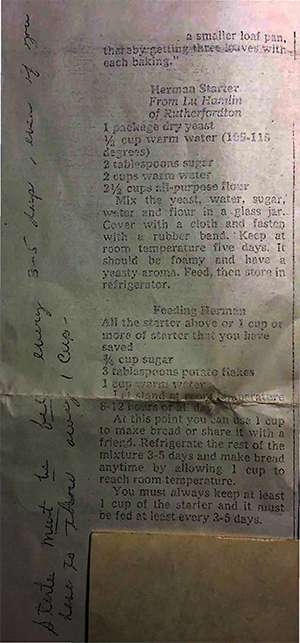 a smaller loaf pan,
thereby getting three loaves with
each baking."
Herman Starter
From Lu Hamlin
of Rutherfordton
1 package dry yeast
¼ cup warm water (105-115
degrees)
2 tablespoons sugar
2 cups warm water
2½ cups all-purpose flour
Mix the yeast, water, sugar,
water and flour in a glass jar.
Cover with a cloth and fasten
with a rubber band. Keep at
room temperature five days. It
should be foamy and have a
yeasty aroma. Feed, then store in
refrigerator.
Feeding Herman
All the starter above or 1 cup or
more of starter that you have
saved
¾ cup sugar
3 tablespoons potato flakes
1 cup warm water
Let stand at room temperature
8-12 hours or all day.
At this point you can use 1 cup
to make bread or share it with a
friend. Refrigerate the rest of the
mixture 3-5 days and make bread
anytime by allowing 1 cup to
reach room temperature.
You must always keep at least
1 cup of the starter and it must
be fed at least every 3-5 days.
Starter must be fed every 3-5 days, even if you
have to throw away 1 Cup-